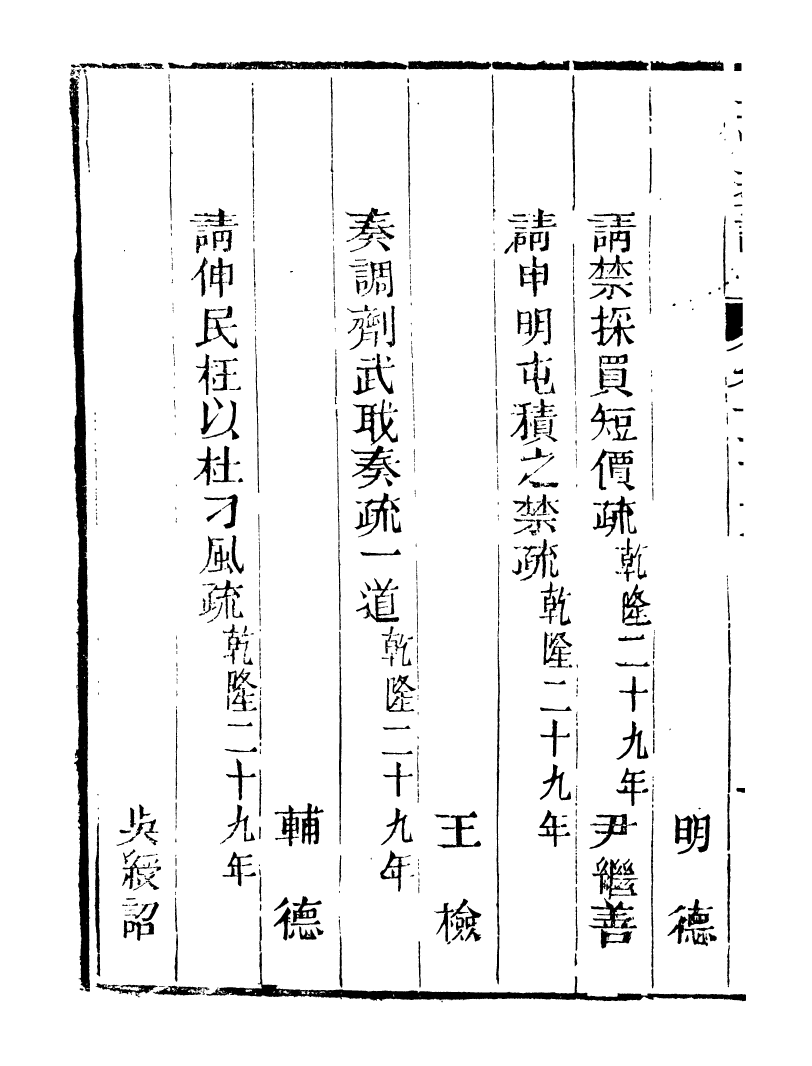 明德
請禁採買短價疏乾隆二十九年尹繼善
請申明屯積之禁疏乾隆二十九年
王檢
奏調劑武职奏疏一道乾隆二十九年
輔德
請伸民枉以杜刁風疏乾隆二十九年
吳綬詔